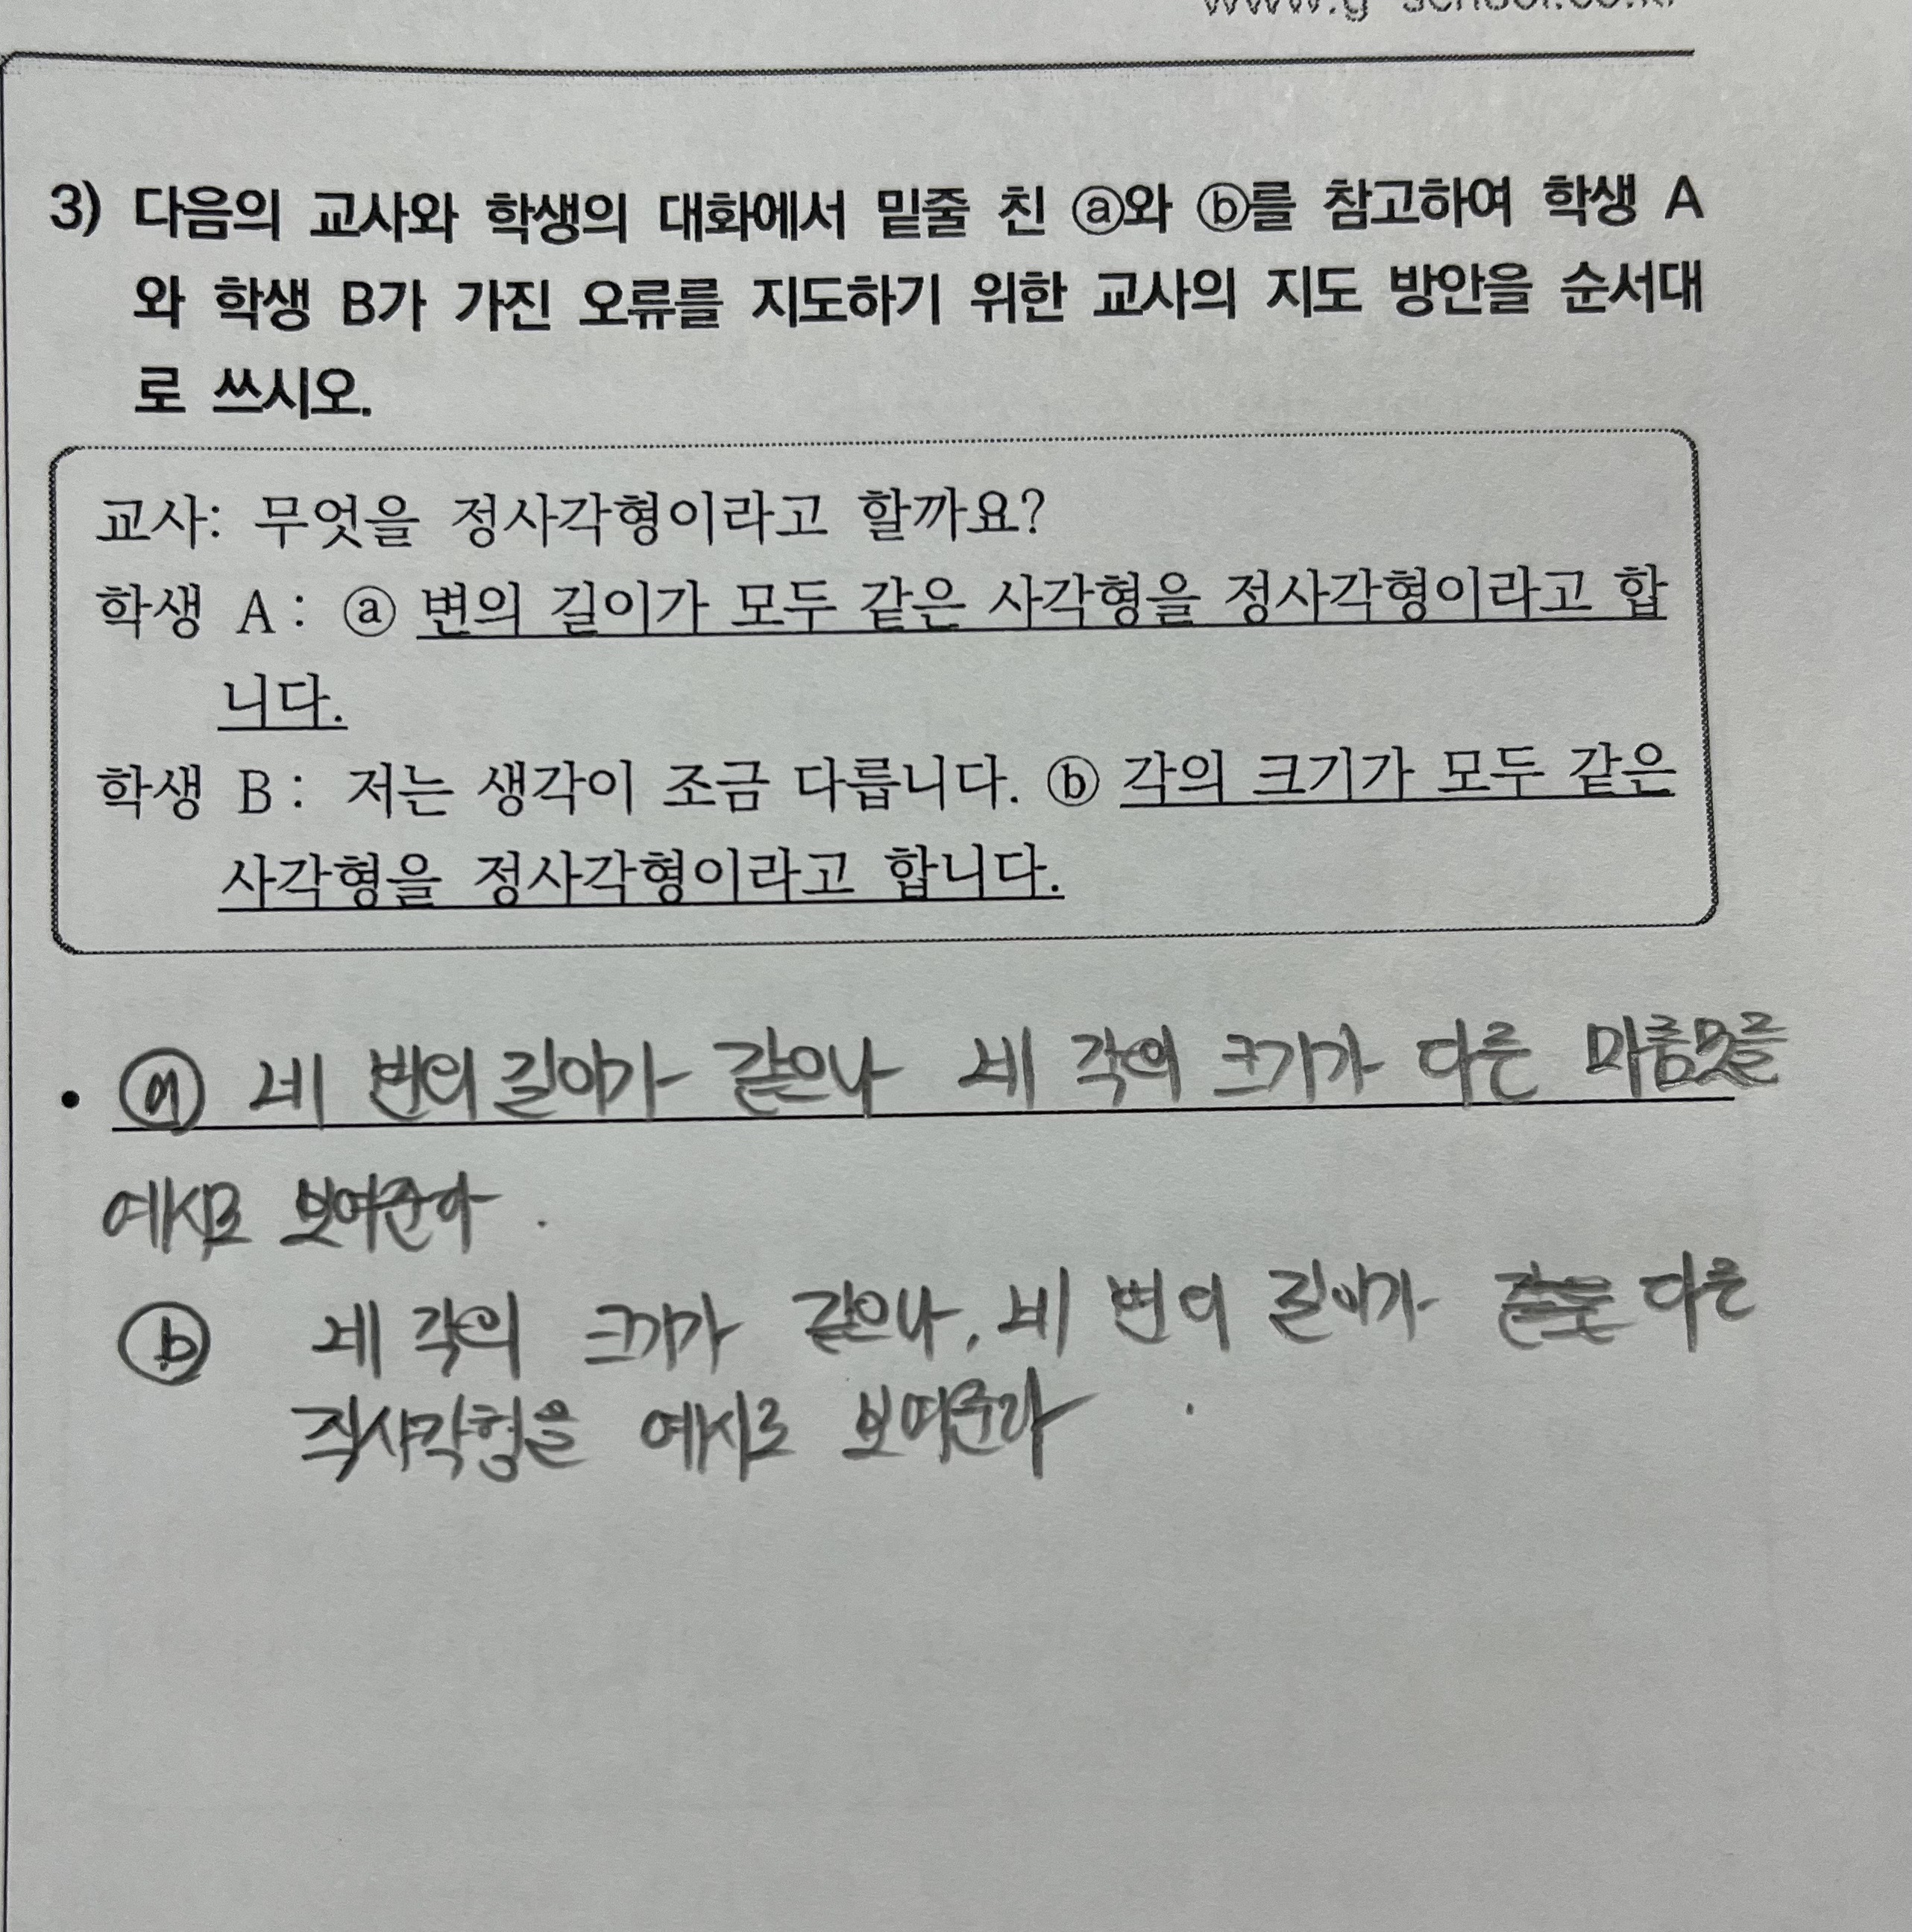 3) 다음의 교사와 학생의 대화에서 밑줄 친 ⓐ와 ⓑ를 참고하여 학생 A
와 학생 B가 가진 오류를 지도하기 위한 교사의 지도 방안을 순서대
로 쓰시오.
교사: 무엇을 정사각형이라고 할까요?
학생 A: ⓐ 변의 길이가 모두 같은 사각형을 정사각형이라고 합
니다.
학생 B: 저는 생각이 조금 다릅니다. ⓑ 각의 크기가 모두 같은
사각형을 정사각형이라고 합니다.
• ⓐ 네 변의 길이가 같으나 네 각의 크기가 다른 마름모를
예시로 보여준다.
ⓑ 네 각의 크기가 같으나, 네 변의 길이가 다른
직사각형을 예시로 보여준다.